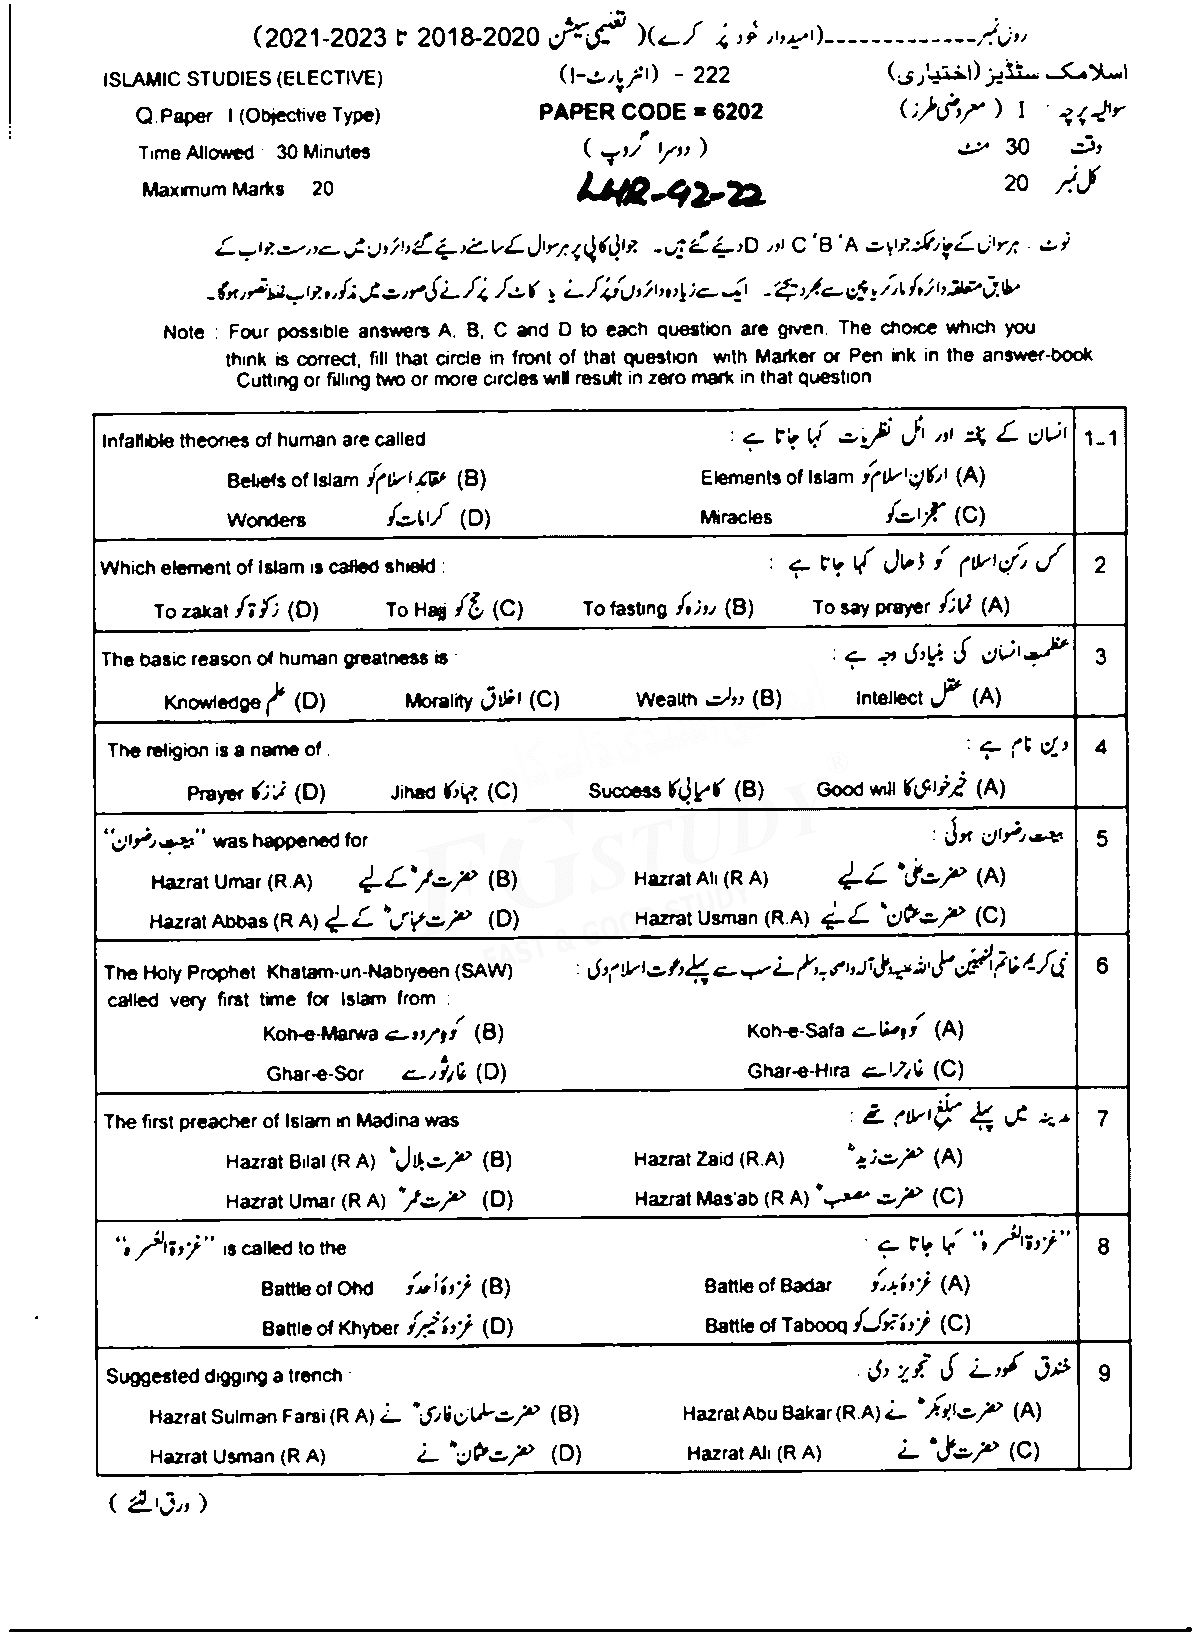 رول نمبر ---------------(امیدوار خود پُر کرے)( تعلیمی سیشن 2020-2018 تا 2023-2021)
ISLAMIC STUDIES (ELECTIVE) 222 - (انٹرپارٹ-I) اسلامک سٹڈیز (اختیاری)
Q.Paper I (Objective Type) PAPER CODE = 6202 سوالیہ پرچہ : I (معروضی طرز)
Time Allowed : 30 Minutes (دوسرا گروپ) وقت 30 منٹ
Maximum Marks 20 LHR-G2-22 کل نمبر 20
نوٹ : ہر سوال کے چار ممکنہ جوابات A ' B ' C اور D دیئے گئے ہیں۔ جوابی کاپی پر ہر سوال کے سامنے دیئے گئے دائروں میں سے درست جواب کے
مطابق متعلقہ دائرہ کو مارکر یا پین سے بھر دیجئے۔ ایک سے زیادہ دائروں کو پُر کرنے یا کاٹ کر پُر کرنے کی صورت میں مذکورہ جواب غلط تصور ہوگا۔
Note : Four possible answers A, B, C and D to each question are given. The choice which you
think is correct, fill that circle in front of that question with Marker or Pen ink in the answer-book
Cutting or filling two or more circles will result in zero mark in that question
Infallible theories of human are called انسان کے پختہ اور اٹل نظریات کہا جاتا ہے : 1-1
Beliefs of Islam عقائد اسلام کو (B) Elements of Islam ارکان اسلام کو (A)
Wonders کرامات کو (D) Miracles معجزات کو (C)
Which element of Islam is called shield : کس رکن اسلام کو ڈھال کہا جاتا ہے : 2
To zakat زکوٰۃ کو (D) To Hajj حج کو (C) To fasting روزہ کو (B) To say prayer نماز کو (A)
The basic reason of human greatness is : عظمت انسان کی بنیادی وجہ ہے : 3
Knowledge علم (D) Morality اخلاق (C) Wealth دولت (B) Intellect عقل (A)
The religion is a name of . دین نام ہے : 4
Prayer نماز کا (D) Jihad جہاد کا (C) Success کامیابی کا (B) Good will خیر خواہی کا (A)
"بیعت رضوان" was happened for بیعت رضوان ہوئی : 5
Hazrat Umar (R.A) حضرت عمرؓ کے لیے (B) Hazrat Ali (R A) حضرت علیؓ کے لیے (A)
Hazrat Abbas (R A) حضرت عباسؓ کے لیے (D) Hazrat Usman (R.A) حضرت عثمانؓ کے لیے (C)
The Holy Prophet Khatam-un-Nabiyeen (SAW) نبی کریم خاتم النبیین صلی اللہ علیہ وعلی آلہ واصحابہ وسلم نے سب سے پہلے دعوت اسلام دی : 6
called very first time for Islam from :
Koh-e-Marwa کوہ مروہ سے (B) Koh-e-Safa کوہ صفا سے (A)
Ghar-e-Sor غار ثور سے (D) Ghar-e-Hira غار حرا سے (C)
The first preacher of Islam in Madina was مدینہ میں پہلے مبلغ اسلام تھے : 7
Hazrat Bilal (R A) حضرت بلالؓ (B) Hazrat Zaid (R.A) حضرت زیدؓ (A)
Hazrat Umar (R A) حضرت عمرؓ (D) Hazrat Mas'ab (R A) حضرت مصعبؓ (C)
"غزوۃ العسرہ" is called to the "غزوۃ العسرہ" کہا جاتا ہے : 8
Battle of Ohd غزوۂ اُحد کو (B) Battle of Badar غزوۂ بدر کو (A)
Battle of Khyber غزوۂ خیبر کو (D) Battle of Tabooq غزوۂ تبوک کو (C)
Suggested digging a trench : خندق کھودنے کی تجویز دی : 9
Hazrat Sulman Farsi (R A) حضرت سلمان فارسیؓ نے (B) Hazrat Abu Bakar (R.A) حضرت ابوبکرؓ نے (A)
Hazrat Usman (R A) حضرت عثمانؓ نے (D) Hazrat Ali (R A) حضرت علیؓ نے (C)
( ورق الٹئے )
FG STUDY
FAST & GOOD STUDY